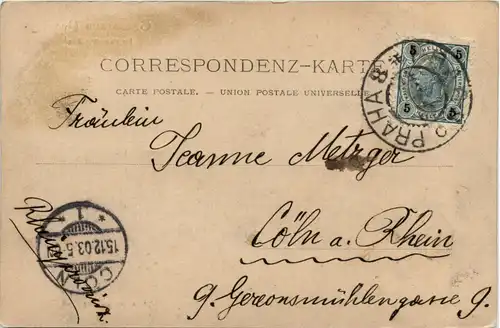 CORRESPONDENZ-KARTE
CARTE POSTALE. — UNION POSTALE UNIVERSELLE
5 5
5 5
PRAHA 8
Fräulein
Jeanne Metzger
Cöln a. Rhein
9. Gereonsmühlengasse 9.
* 1 *
15.12.03.5
CÖLN